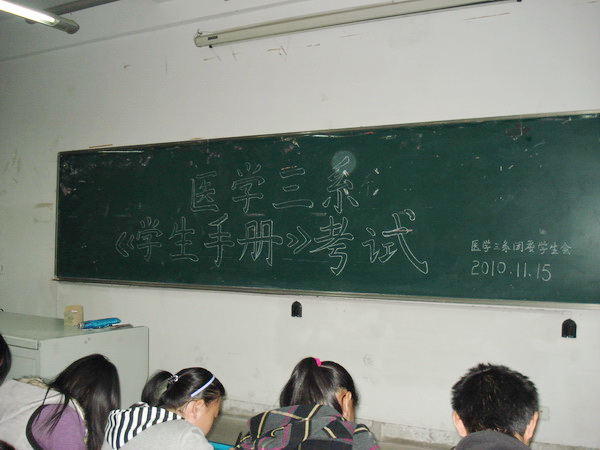 医学三系
《学生手册》考试
医学三系团委学生会
2010.11.15